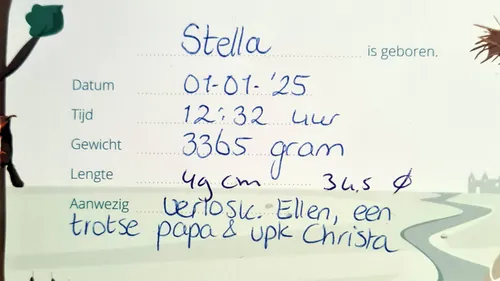 Stella is geboren.
Datum 01-01-'25
Tijd 12:32 uur
Gewicht 3365 gram
Lengte 49 cm 34,5 ∅
Aanwezig Verlosk. Ellen, een
trotse papa & vpk Christa